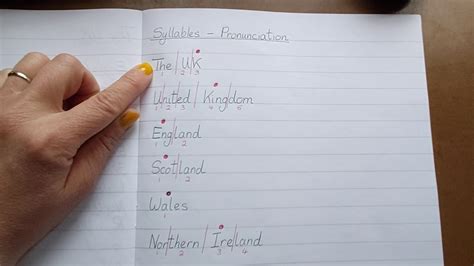 Syllables - Pronunciation
The | U | K
1 2 3
U | nit | ed | King | dom
1 2 3 4 5
Eng | land
1 2
Scot | land
1 2
Wales
1
Nor | thern | Ire | land
1 2 3 4